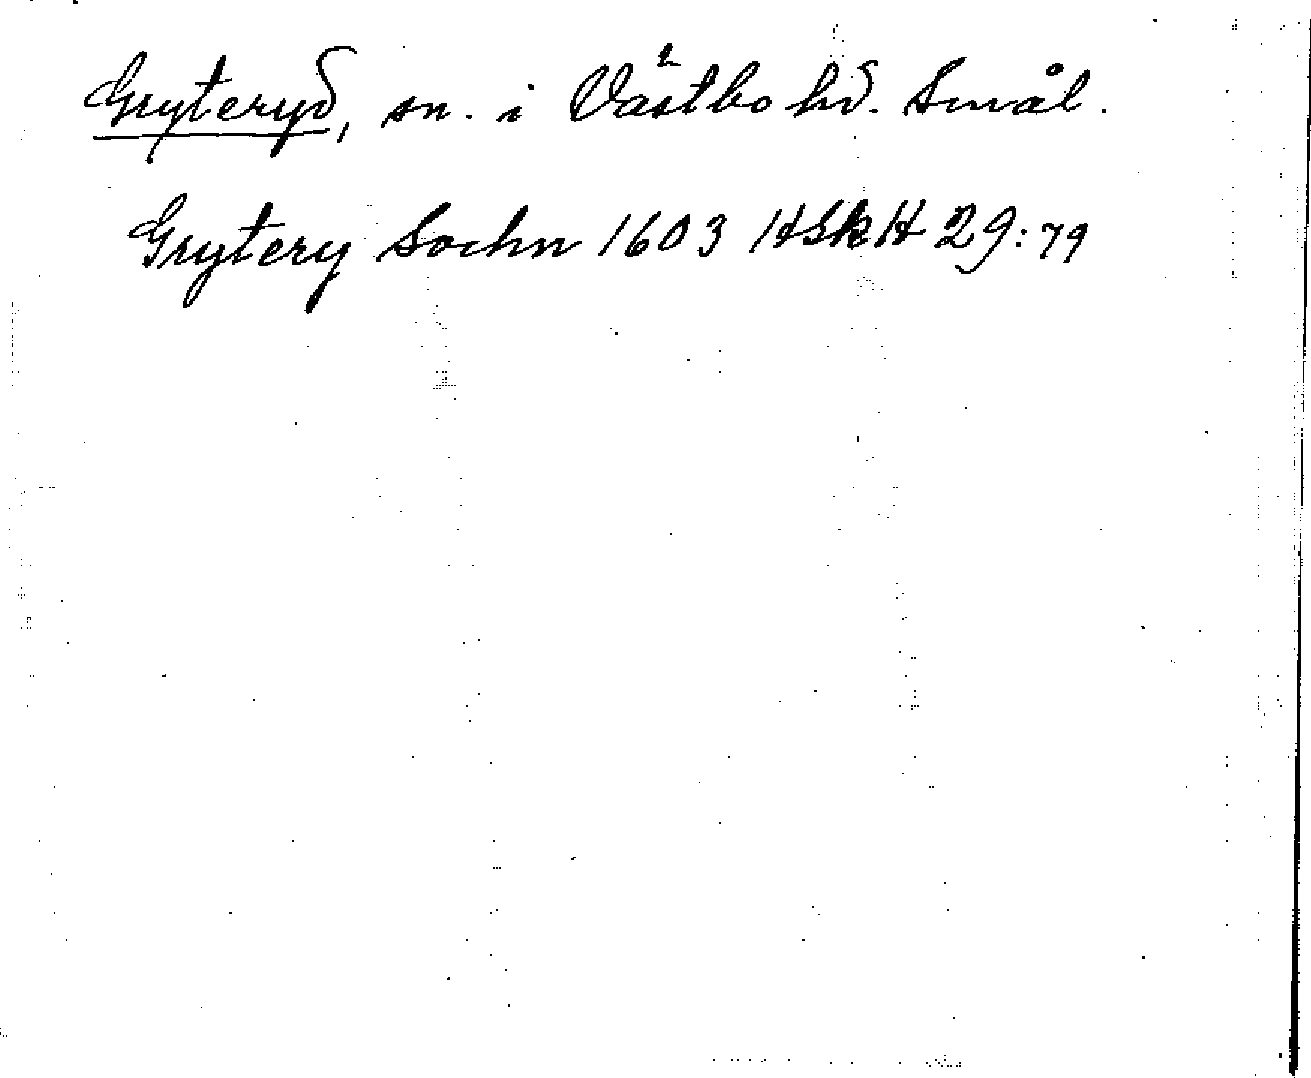 Gryteryd, sn. i Västbo hd. Smål.
Grytery Sochn 1603 HSkH 29:79